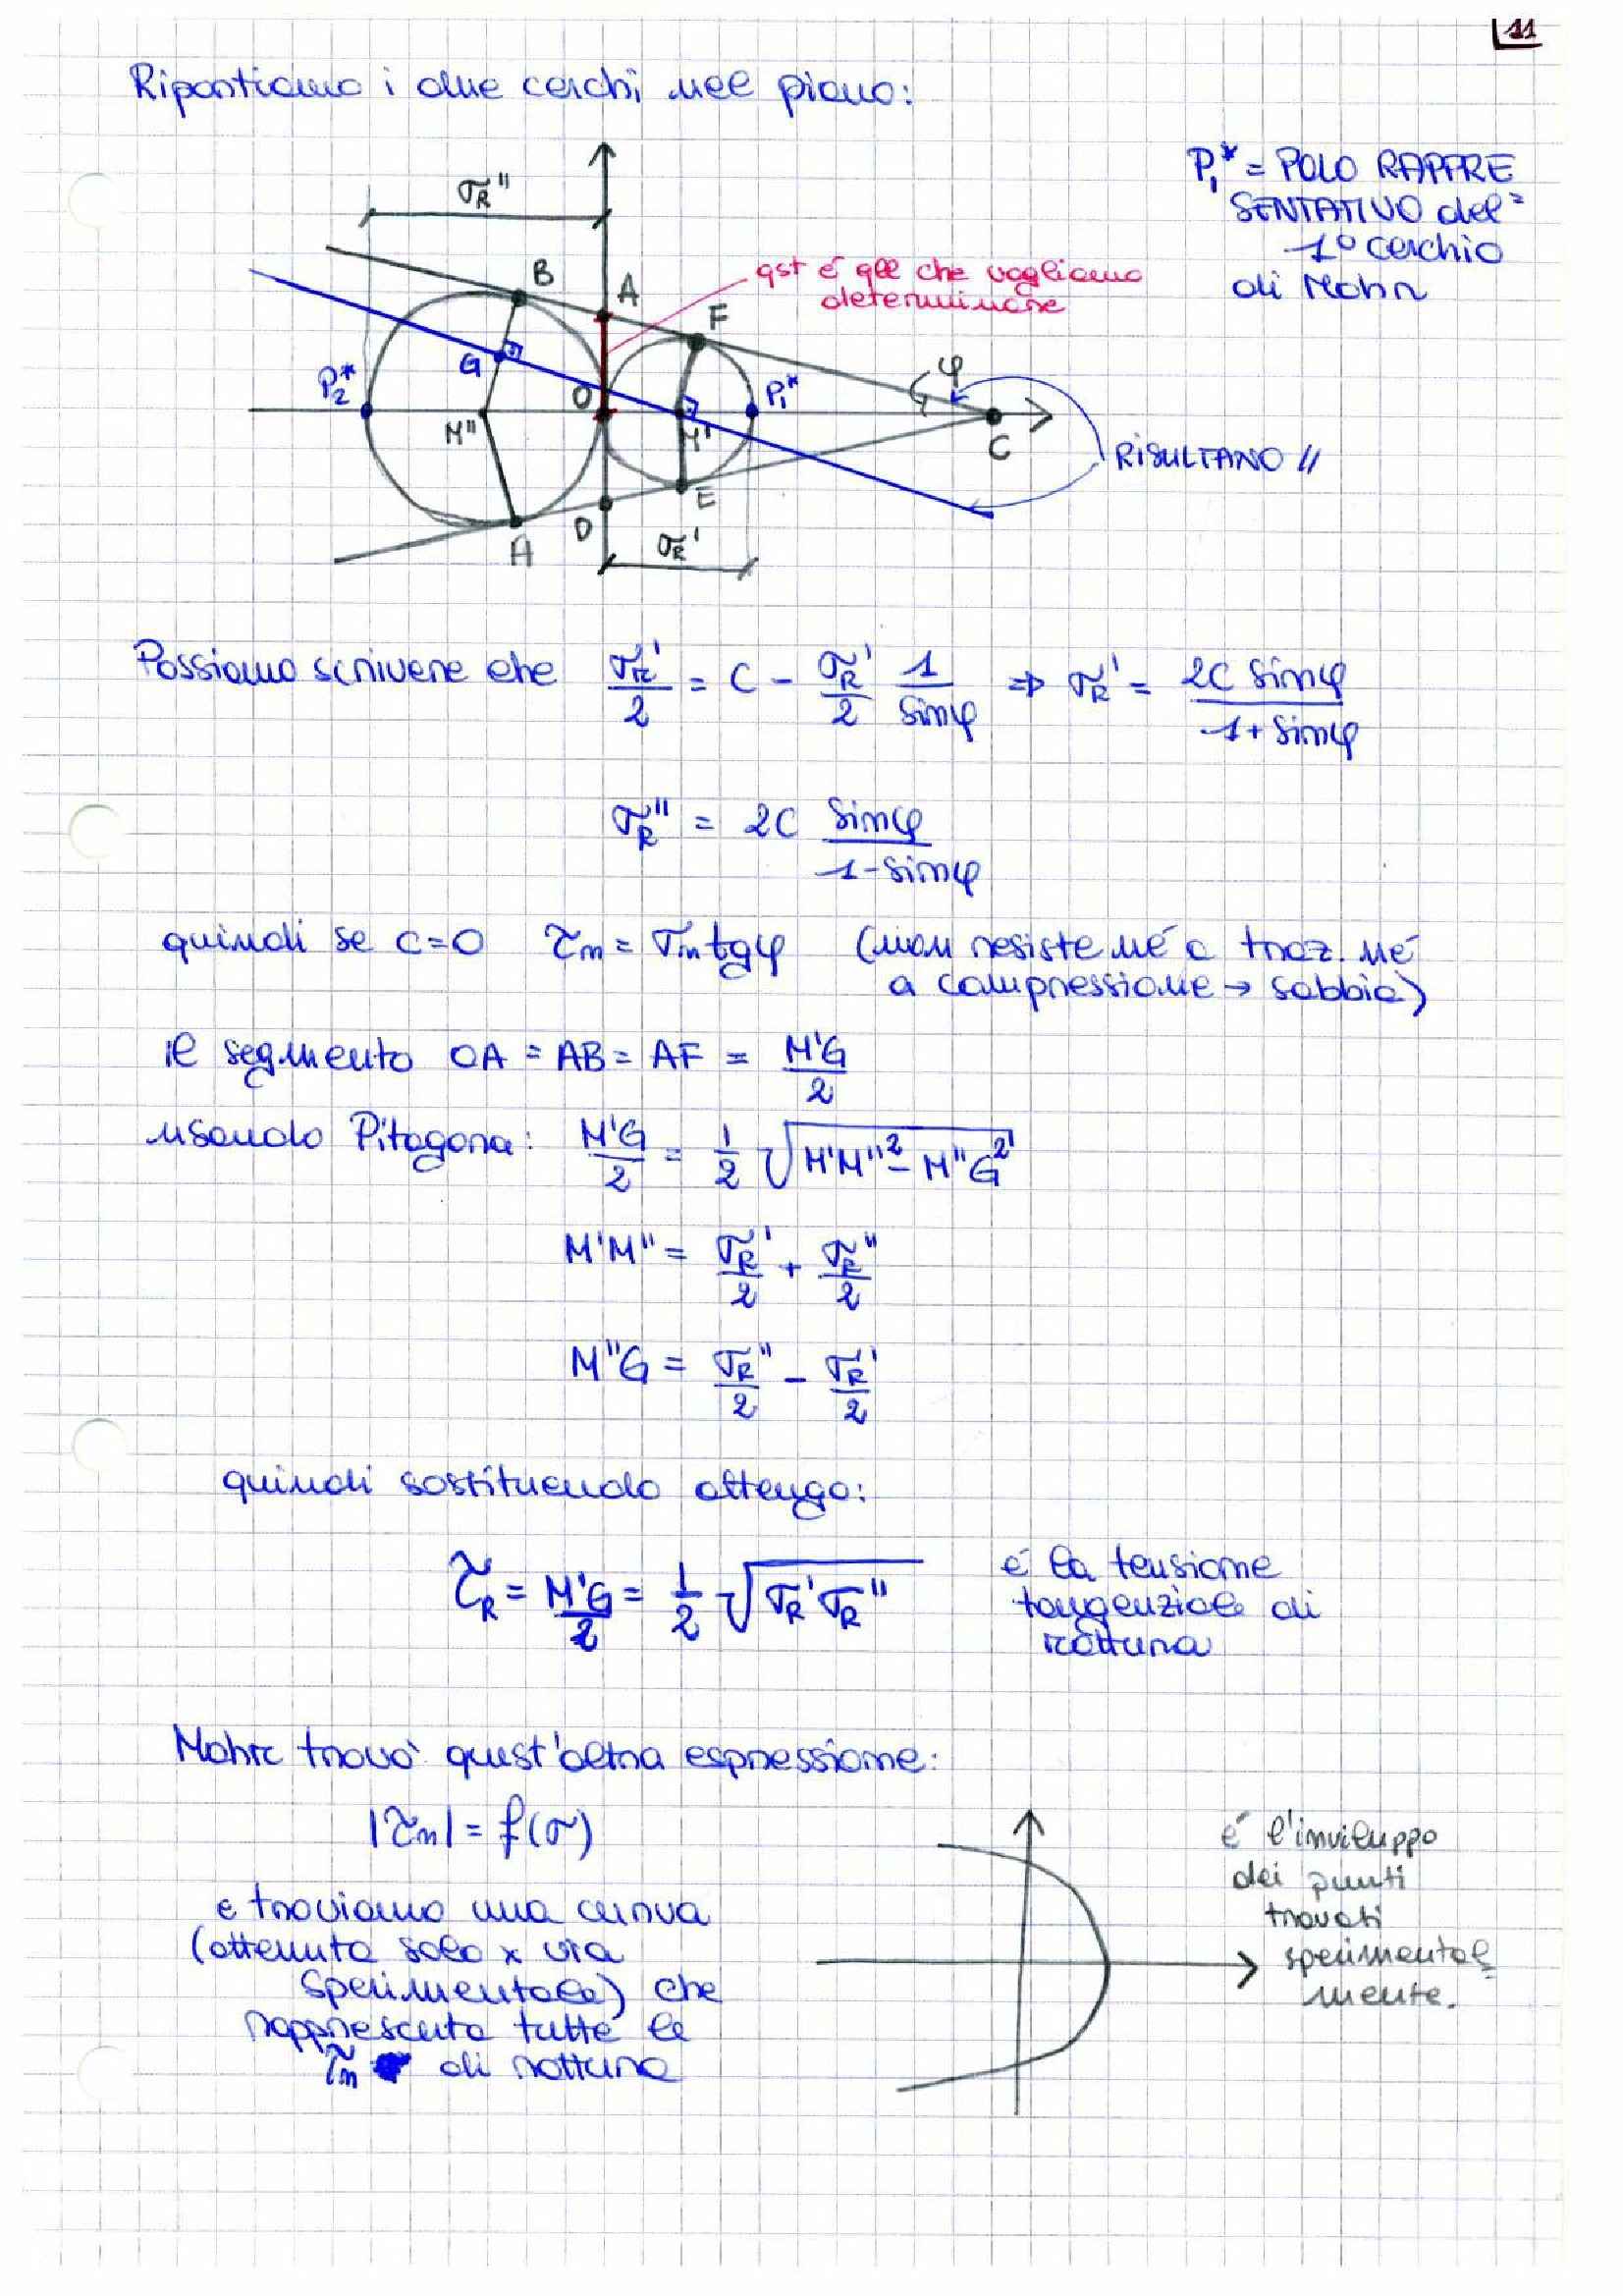 11
Riportiamo i due cerchi nel piano:
P₁* = POLO RAPPRE
SENTATIVO del
1° cerchio
di Mohr
σR''
qst é qll che vogliamo
determinare
B
A
F
G
φ
P₂*
O
P₁*
M''
M'
C
RISULTANO //
E
D
A
σR'
Possiamo scrivere che σR'/2 = C - σR'/2 1/sinφ ⇒ σR' = 2C sinφ/1+sinφ
σR'' = 2C sinφ/1-sinφ
quindi se C=0 τn = σn tgφ (non resiste né a traz. né
a compressione → sabbia)
il segmento OA = AB = AF = M'G/2
usando Pitagora: M'G/2 = 1/2 √(M'M''² - M''G²)
M'M'' = σR'/2 + σR''/2
M''G = σR''/2 - σR'/2
quindi sostituendo ottengo:
τR = M'G/2 = 1/2 √(σR' σR'')
é la tensione
tangenziale di
rottura
Mohr trovò quest'altra espressione:
|τn| = f(σ)
e troviamo una curva
(ottenuta solo x via
sperimentale) che
rappresenta tutte le
τn di rottura
é l'inviluppo
dei punti
trovati
sperimental-
mente.